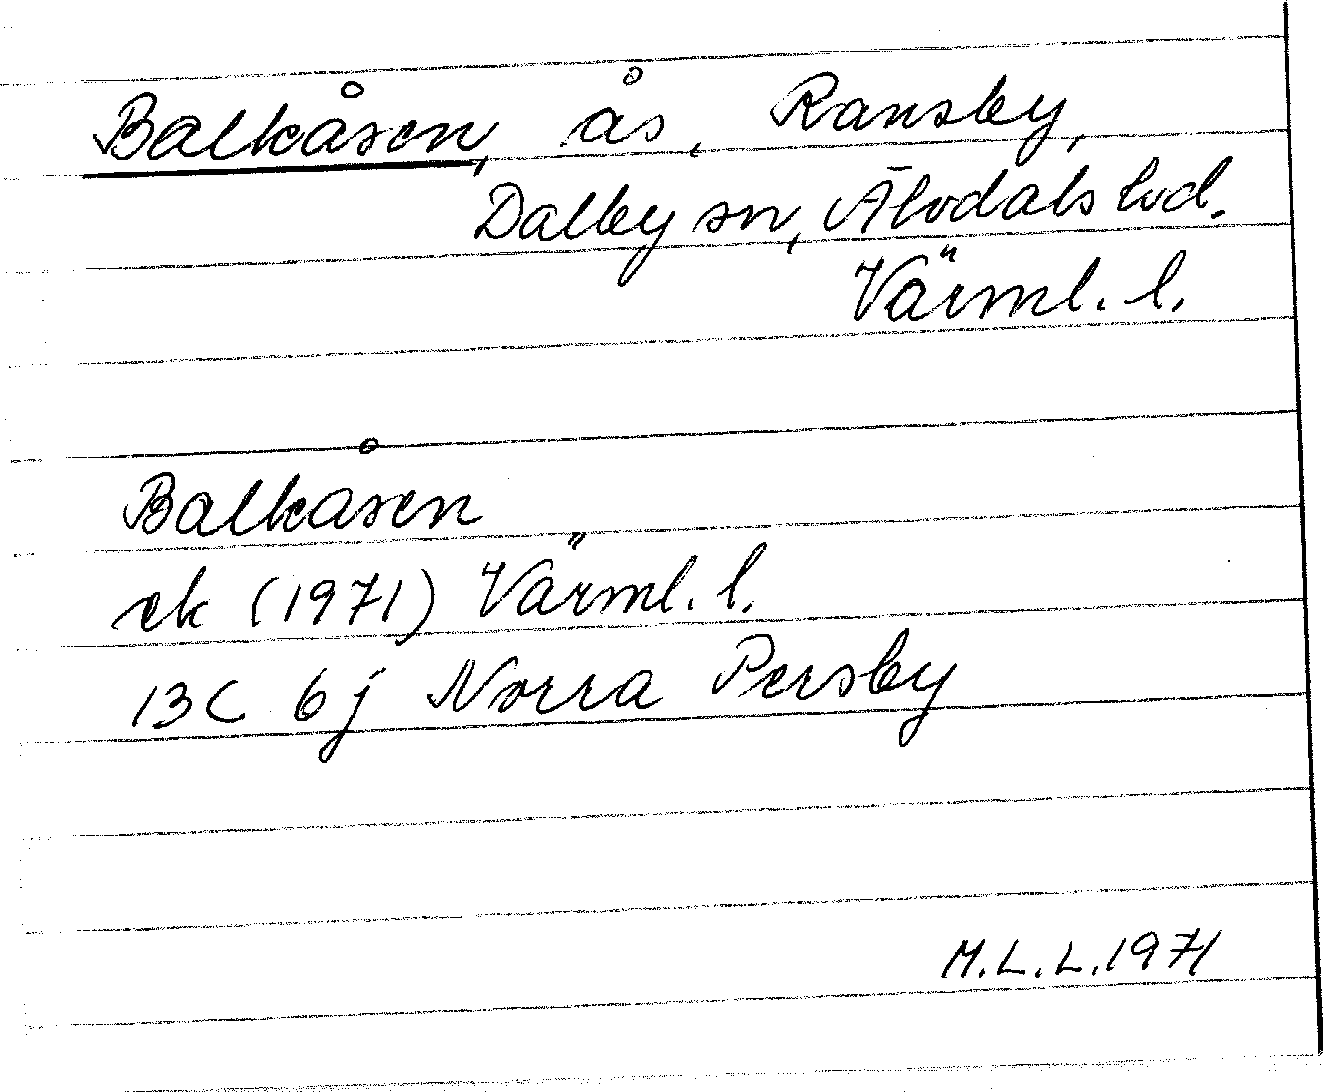 Balkåsen, ås, Ransby,
Dalby sn, Älvdals hd.
Värml. l.
Balkåsen
ek (1971) Värml. l.
13C 6j Norra Persby
M.L.L. 1971